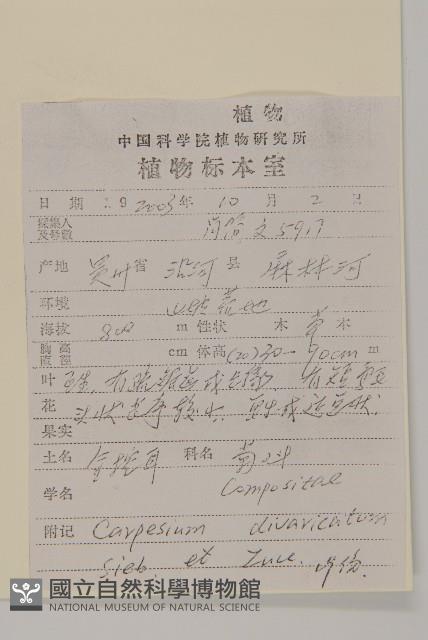 植物
中国科学院植物研究所
植物标本室
日 期 19 2003年 10 月 2 日
採集人
及号数 5917
产地 贵州省 沿河县 麻林河
环境 山坡荒地
海拔 800 m 性状 木 草 本
胸高
直径 cm 体高 (20)30-90cm m
叶 互生,
花 头状花序
果实
土名 金挖耳 科名 菊科
Compositae
学名
附记 Carpesium divaricatum
Sieb. et Zucc.
國立自然科學博物館
NATIONAL MUSEUM OF NATURAL SCIENCE